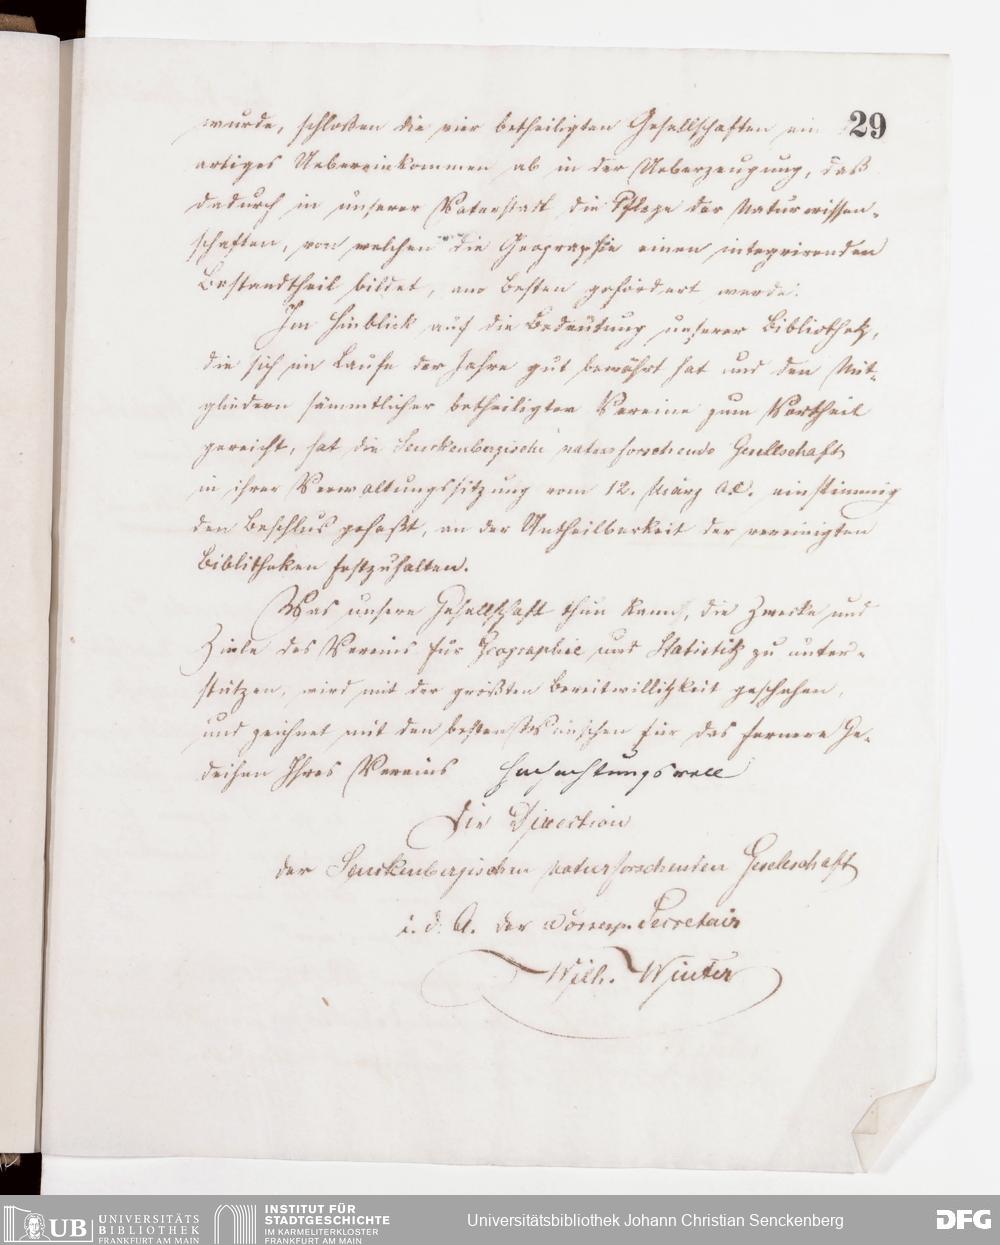 29
wurde, schloßen die vier betheiligten Gesellschaften ein
artiges Uebereinkommen ab in der Ueberzeugung, daß
dadurch in unserer Vaterstadt die Pflege der Naturwissen-
schaften, von welchen die Geographie einen integrirenden
Bestandtheil bildet, am besten gefördert werde.
Im Hinblick auf die Bedeutung unserer Bibliothek,
die sich im Laufe der Jahre gut bewährt hat und den Mit-
gliedern sämmtlicher betheiligten Vereine zum Vortheil
gereicht, hat die Senckenbergische naturforschende Gesellschaft
in ihrer Verwaltungssitzung vom 12. März a.c. einstimmig
den Beschluß gefaßt, an der Untheilbarkeit der vereinigten
Bibliotheken festzuhalten.
Was unsere Gesellschaft thun kann, die Zwecke und
Ziele des Vereins für Geographie und Statistik zu unter-
stützen, wird mit der größten Bereitwilligkeit geschehen,
und zeichnet mit den besten Wünschen für das fernere Ge-
deihen Ihres Vereins hochachtungsvoll
Die Direction
der Senckenbergischen naturforschenden Gesellschaft
i. d. A. der corresp. Secretair
Wilh. Winter
UB UNIVERSITÄTS
BIBLIOTHEK
FRANKFURT AM MAIN
INSTITUT FÜR
STADTGESCHICHTE
IM KARMELITERKLOSTER
FRANKFURT AM MAIN
Universitätsbibliothek Johann Christian Senckenberg
DFG